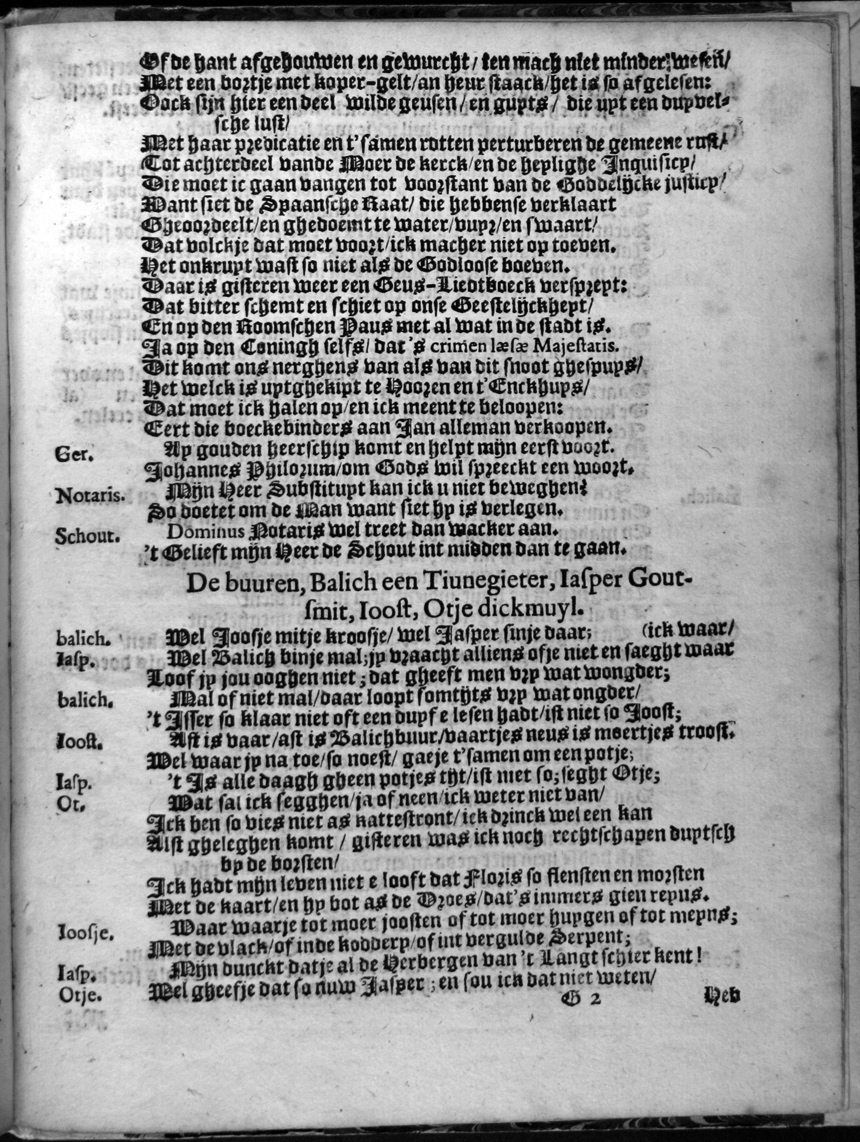 Of de hant afgehouwen en gewurcht/ ten mach niet minder wesen/
Met een bortje met koper-gelt/an heur staack/het is so afgelesen:
Oock sijn hier een deel wilde geusen/en guyts/ die uyt een duyvel-
sche lust/
Met haar predicatie en t'samen rotten perturberen de gemeene rust/
Tot achterdeel vande Moer de kerck/en de heylighe Inquisicy/
Die moet ic gaan vangen tot voorstant van de Goddelijcke justicy/
Want siet de Spaansche Raat/ die hebbense verklaart
Gheoordeelt/en ghedoemt te water/vuyr/en swaart/
Dat volckje dat moet voort/ick macher niet op toeven.
Het onkruyt wast so niet als de Godloose boeven.
Daar is gisteren weer een Geus-Liedtboeck verspreyt:
Dat bitter schemt en schiet op onse Geestelijckheyt/
En op den Roomschen Paus met al wat in de stadt is.
Ja op den Coningh selfs/ dat's crimen læsæ Majestatis.
Dit komt ons nerghens van als van dit snoot ghespuys/
Het welck is uytghekipt te Hooren en t'Enckhuys/
Dat moet ick halen op/en ick meent te beloopen:
Eert die boeckebinders aan Jan alleman verkoopen.
Ger. Ay gouden heerschip komt en helpt mijn eerst voort.
Johannes Philorum/om Gods wil spreeckt een woort.
Notaris. Mijn Heer Substituyt kan ick u niet beweghen?
So doetet om de Man want siet hy is verlegen.
Schout. Dominus Notaris wel treet dan wacker aan.
't Gelieft mijn Heer de Schout int midden dan te gaan.
De buuren, Balich een Tiunegieter, Iasper Gout-
smit, Ioost, Otje dickmuyl.
balich. Wel Joosje mitje kroosje/ wel Jasper sinje daar; (ick waar/
Iasp. Wel Balich binje mal;jy vraacht alliens ofje niet en saeght waar
Loof jy jou ooghen niet; dat gheeft men vry wat wongder;
balich. Mal of niet mal/daar loopt somtijts vry wat ongder/
't Isser so klaar niet oft een duyf e lesen hadt/ist niet so Joost;
Ioost. Ast is vaar/ast is Balichbuur/vaartjes neus is moertjes troost.
Wel waar jy na toe/so noest/ gaeje t'samen om een potje;
Iasp. 't Is alle daagh gheen potjes tijt/ist niet so;seght Otje;
Ot. Wat sal ick segghen/ja of neen/ick weter niet van/
Ick ben so vies niet as kattestront/ick drinck wel een kan
Alst gheleghen komt / gisteren was ick noch rechtschapen duytsch
by de borsten/
Ick hadt mijn leven niet e looft dat Floris so flensten en morsten
Met de kaart/en hy bot as de Droes/dat's immers gien reyns.
Ioosje. Waar waarje tot moer joosten of tot moer huygen of tot meyns;
Met de vlack/of inde koddery/of int vergulde Serpent;
Iasp. Mijn dunckt datje al de Herbergen van 't Langt schier kent!
Otje. Wel gheefje dat so nuw Jasper; en sou ick dat niet weten/
G 2 Heb